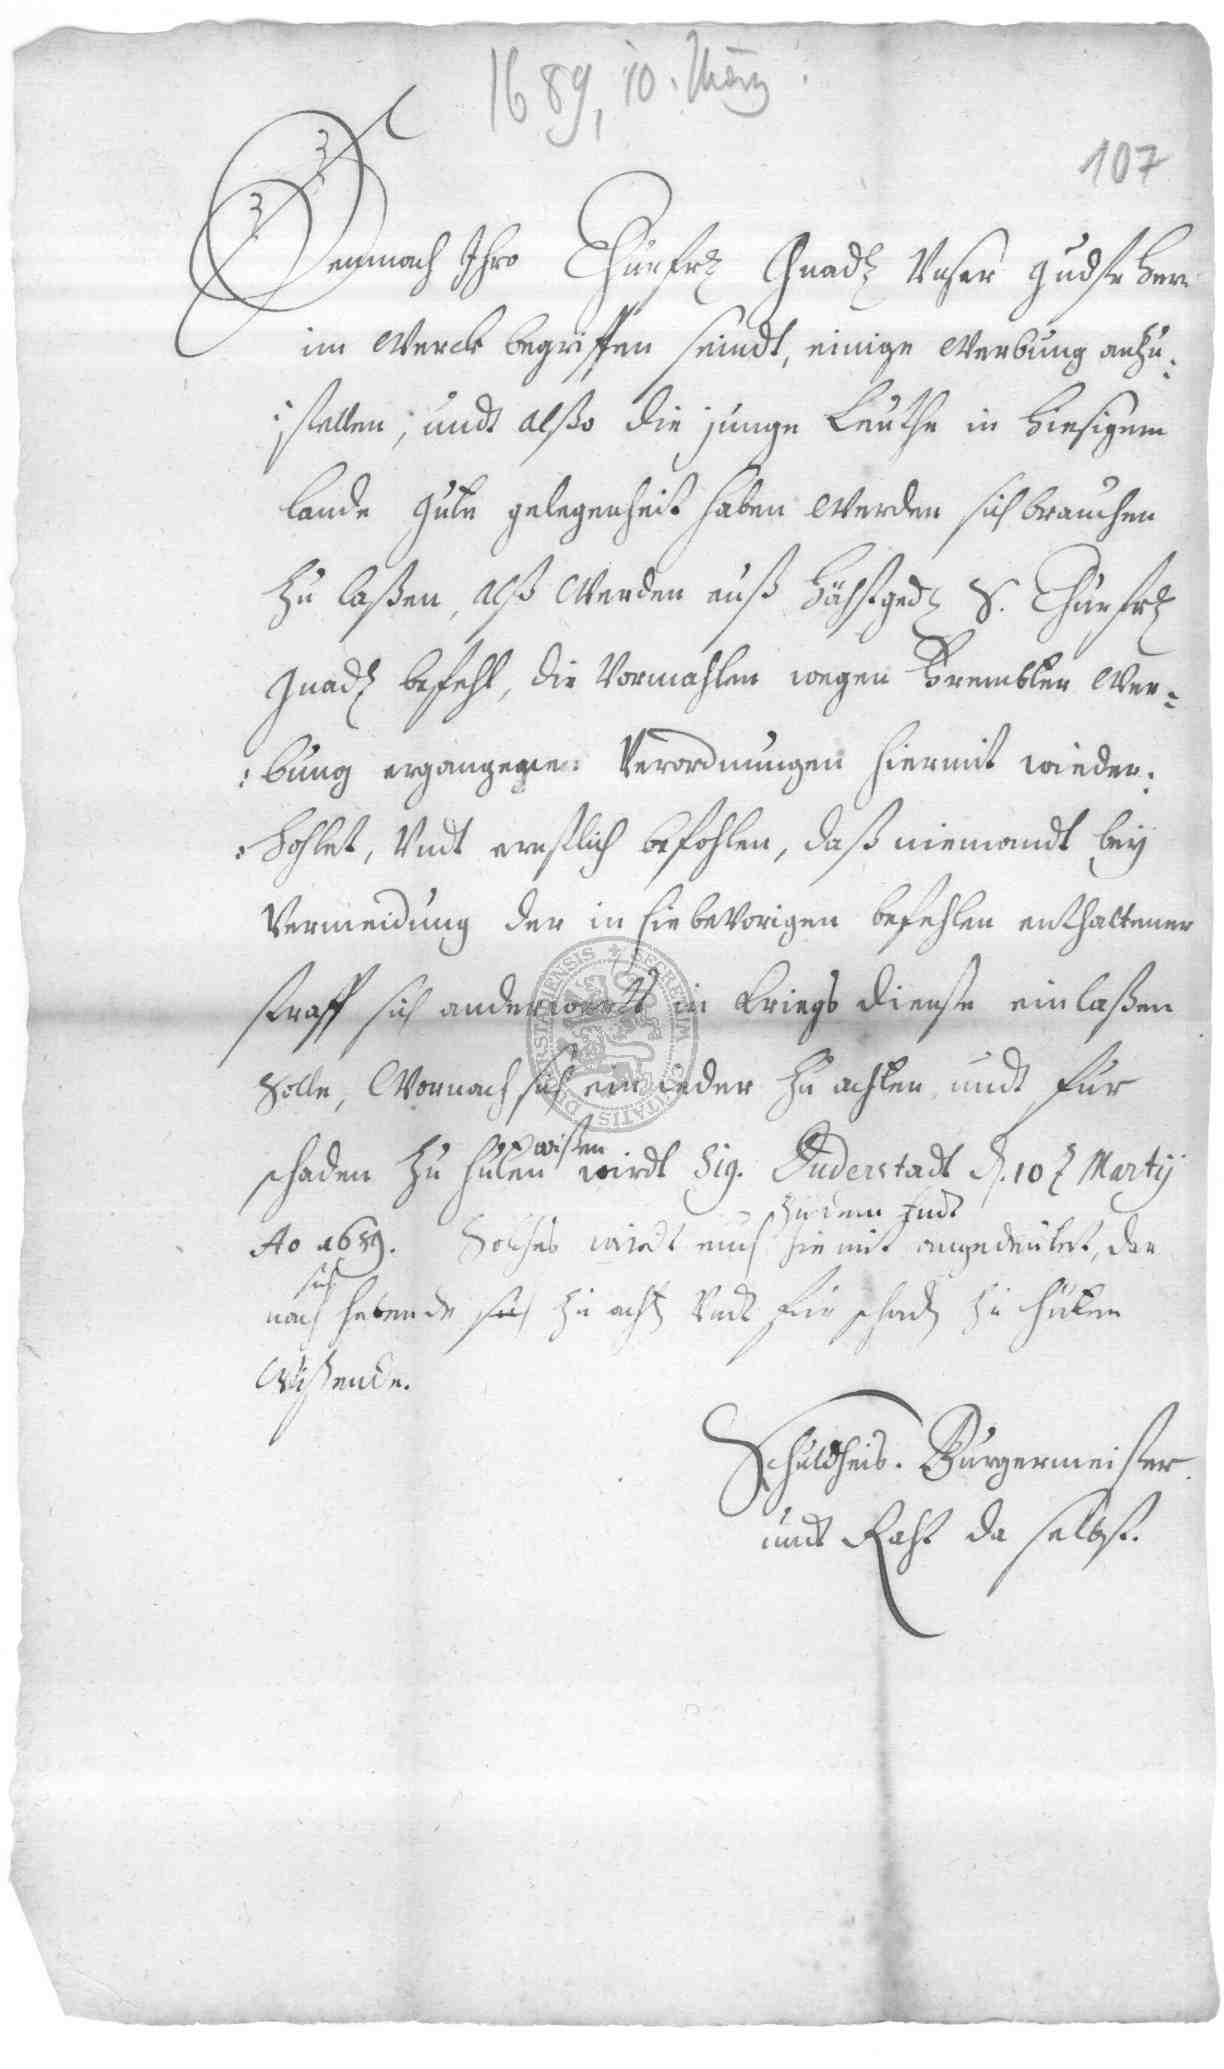 1689, 10. März.
107
Demnach Ihro Churfrl Gnadl Unser gndstr Herr
im Werck begriffen seindt, einige Werbung anzu:
:stellen, undt alßo die junge Leuthe in hiesigem
lande gute gelegenheit haben werden sich brauchen
zu laßen, alß Werden auß höchstgedl S. Churfrl
Gnadl befehl, die Vormahlen wegen frembter Wer:
:bung ergangene Verordnungen hiermit wieder:
:hohlet, Undt ernstlich befohlen, daß niemandt bey
Vermeidung der in hiebeVorigen befehlen enthaltener
straff sich anderwerts in Kriegs dienste einlaßen
solle, Wornach sich ein ieder zu achten, undt für
schaden zu hüten wißen wirdt Sig. Duderstadt d. 10 t Martij
Ao 1689. Solches wirdt euch zu dem Endt hiemit angedeutet, dar
nach sich habende zu acht Undt für schad zu hüten
Wißende.
Schultheis. Burgermeister
undt Raht da selbst.
SECRETUM CIVITATIS DUDERSTADIENSIS